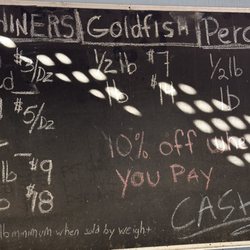 HINERS Goldfish Perc
$3/Dz 1/2 lb $7 1/2 lb
lb 14 lb
$5/Dz
10% off whe
lb $9 YOU PAY
$18 CASH
lb minimum when sold by weight